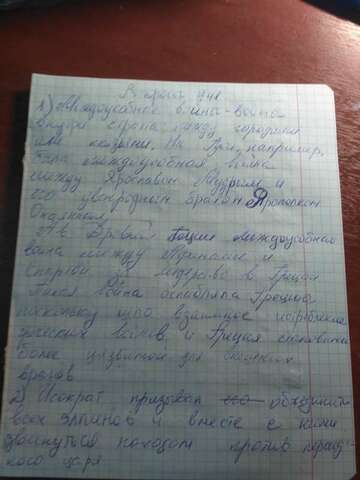 1) Междоусобное война - война
внутри страны между городами
или князьями. На Руси, например,
была междоусобная война
между Ярославом Мудрым и
его двоюродным братом Ярополком
Окаянным.
А в Древней Греции междоусобная
война между Афинами и
Спартой за лидерство в Греции
Такая война ослабляла Грецию
поскольку шло взаимное истребление
греческих воинов, и Греция становилась
более уязвимой для внешних
врагов
2) Исократ призывал объединить
всех эллинов и вместе с ними
двинуться походом против персид-
кого царя